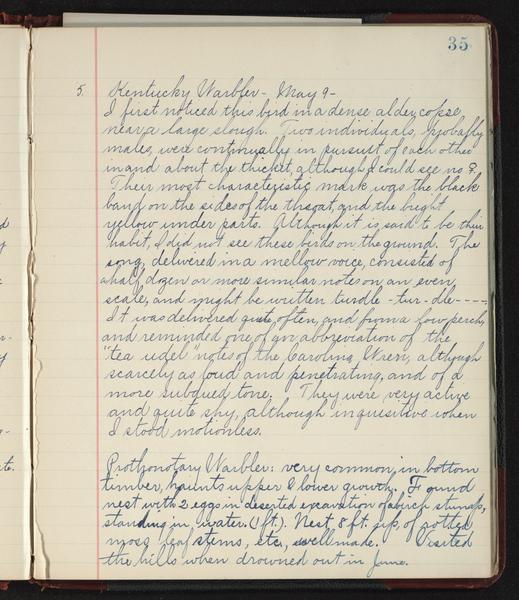 35
5. Kentucky Warbler - May 9 -
I first noticed this bird in a dense alder copse
near a large slough. Two individuals, probably
males, were continually in pursuit of each other
in and about the thicket, although I could see no ♀.
Their most characteristic mark was the black
band on the sides of the throat, and the bright
yellow under parts. Although it is said to be their
habit, I did not see these birds on the ground. The
song, delivered in a mellow voice, consisted of
a half dozen or more similar notes on an even
scale, and might be written turdle - tur - dle - - - -
It was delivered quite often, and from a low perch,
and reminded one of an abbreviation of the
"tea udel" notes of the Carolina Wren, although
scarcely as loud and penetrating, and of a
more subdued tone. They were very active
and quite shy, although inquisitive when
I stood motionless.
Prothonotary Warbler: very common, in bottom
timber, haunts upper & lower growth. Found
nest with 2 eggs in deserted excavation of a birch stump,
standing in water. (1 ft.). Nest, 8 ft. up, of rotted
moss, leaf stems, etc, well made. Visited
the hills when drowned out in June.